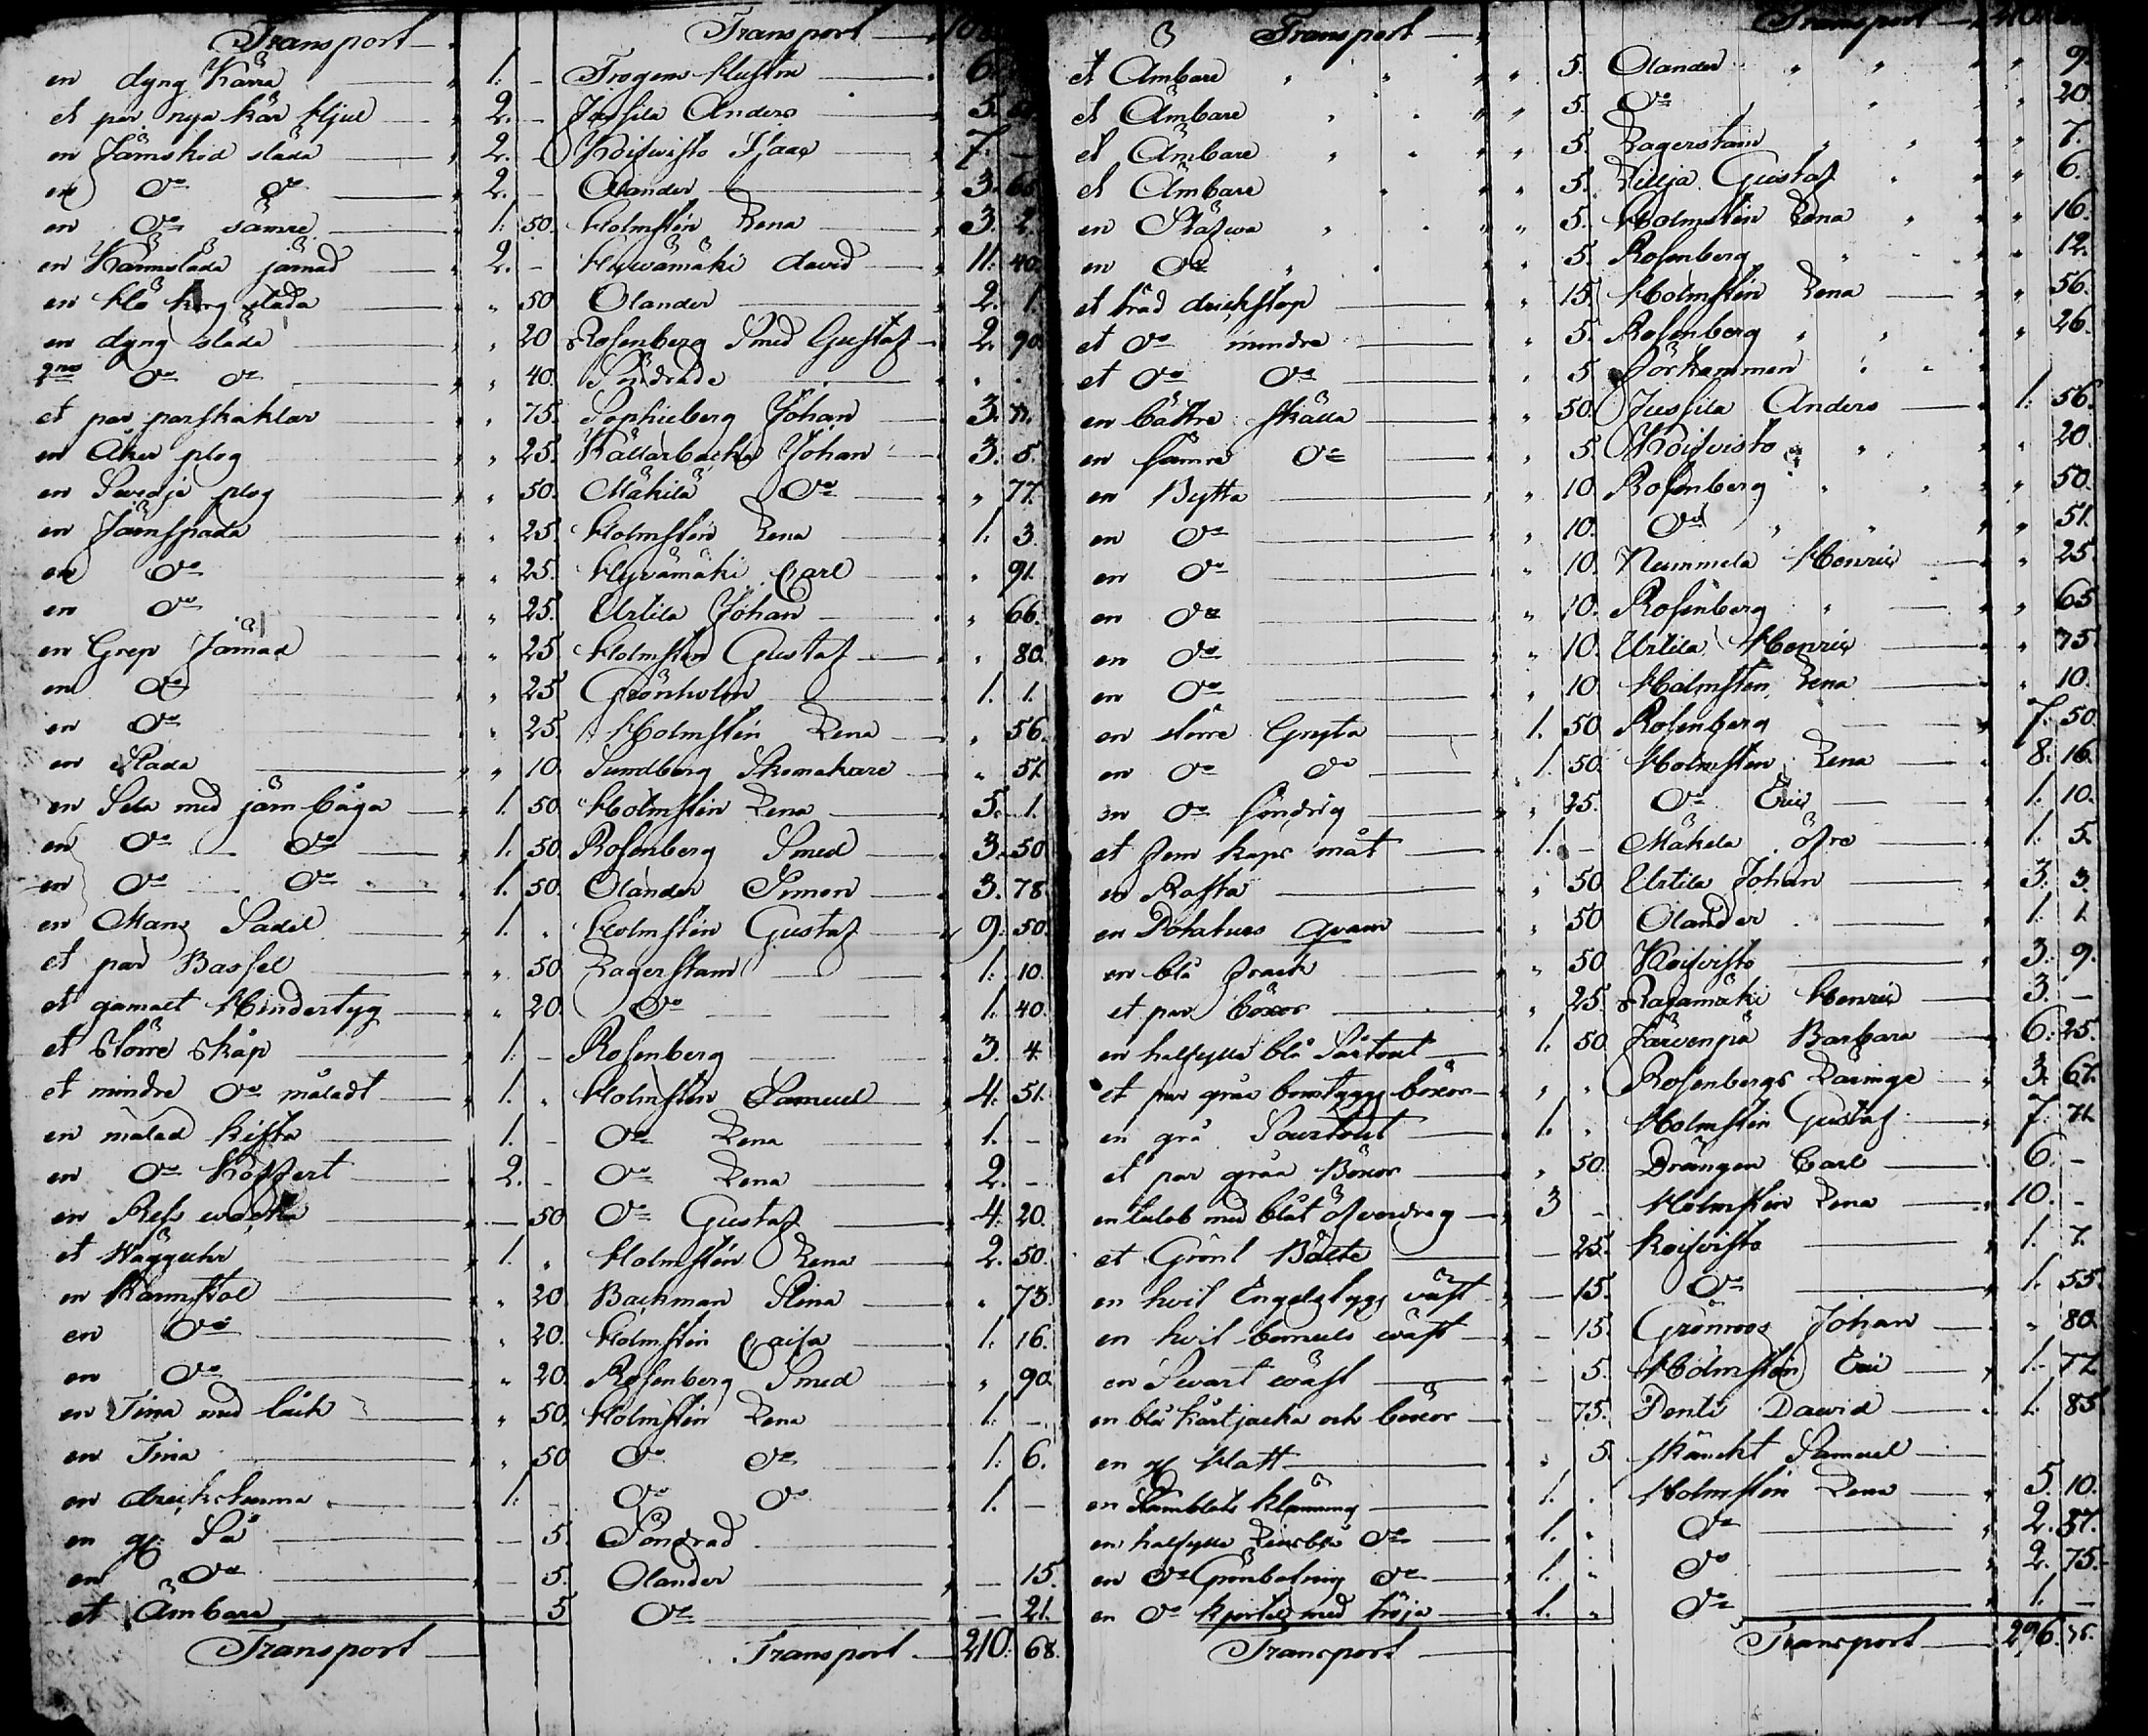 Transport — Transport —
en dyng Kärra — 1. - Trogens Hustru — 6.
et par nya kär Hjul — 2. - Jussila Anders — 5.
en Järnskod släda — 2. - Koisvisto Isaac — 7. -
en Do Do — 2. - Olander — 3. 65
en Do sämre — 1. 50. Holmstén Lena — 3. 2.
en Kärmsläda järnad — 2. - Hyvämäki david — 11. 40.
en släda — " 50 Olander — 2. 1.
en dyng släda — " 20 Rosenberg Smed Gustaf — 2. 90.
2ne Do Do — " 40. Söndrade — " "
et par parskaklar — " 75. Sophieberg Johan — 3. 71.
en Åker plog — " 25. Källarbacka Johan — 3. 5.
en Svedje plog — " 50. Mäkilä Do — " 77.
en Järnspada — " 25. Holmstén Lena — 1. 3.
en Do — " 25. Hyvämäki Carl — " 91.
en Do — " 25. Urtila Johan — " 66.
en Grep Järnad — " 25 Holmstén Gustaf — " 80.
en Do — " 25 Grönholm — 1. 1.
en Do — " 25. Holmstén Lena — " 56.
en Slada — " 10. Sundberg Skomakare — " 51.
en Sela med järn båga — 1. 50 Holmstén Lena — 5. 1.
en Do Do — 1. 50 Rosenberg Smed — 3. 50
en Do Do — 1. 50. Olander Simon — 3. 78.
en Mans Sadel — 1. " Holmstén Gustaf — 9. 50.
et par Bassel — " 50 Lagerstam — 1. 10.
et gamalt Hindertyg — " 20. Do — 1. 40.
et större skåp — 1. - Rosenberg — 3. 4.
et mindre Do måladt — 1. " Holmstén Samuel — 4. 51.
en målad kista — 1. - Do Lena — 1. -
en Do Koffert — 2. - Do Lena — 2. -
en Res — 50 Do Gustaf — 4. 20.
et Wägguhr — 1. " Holmstén Lena — 2. 50.
en Karmstol — " 20. Backman Stina — " 75.
en Do — " 20. Holmstén Caisa — 1. 16.
en Do — " 20. Rosenberg Smed — " 90.
en Tina med låck — " 50. Holmstén Lena — 1. -
en Tina — " 50 Do Do — 1. 6.
en drickskanna — 1. - Do Do — 1. -
en gl. Så — 5. Söndrad —
en Do — 5. Olander — 15.
et Ämbare — 5 Do — 21.
Transport — Transport — 210. 68.
3 Transport — Transport —
et Ämbare " " 5. Olander " " 9.
et Ämbare " " 5. Do " 20.
et Ämbare " " 5. Lagerstam " " 7.
et Ämbare " 5. Lillja Gustaf " 6.
en Stäfwa " " 5. Holmstén Lena " 16.
en Do " " 5. Rosenberg " 12.
et träd drickstop — " 15. Holmstén Lena — " 56.
et Do mindre — " 5. Rosenberg " " 26.
et Do Do — " 5 Sörkammen
en bättre skålla — " 50. Jussila Anders — 1. 56.
en sämre Do — " 5. Koisvisto " 20.
en Bytta — " 10. Rosenberg " 50.
en Do — " 10. Do " 51.
en Do — " 10. Nummela Henric — " 25.
en Do — " 10. Rosenberg — " 65
en Do — " 10. Urtila Henric — " 75.
en Do — " 10. Holmstén Lena — " 10.
en större Gryta — 1. 50 Rosenberg — 7. 50.
en Do Do — 1. 50. Holmstén Lena — 8. 16.
en Do söndrig — " 25. Do Eric — 1. 10.
et fem kaps mått — 1. - Mäkela öfre — 1. 5.
en — " 50 Urtila Johan — 3. 3.
en Potatures qvarn — " 50 Olander — 1. 1.
en blå frack — " 50 Koisvisto — 3. 9.
et par böxor — " 25. Rajamäki Henric — 3. -
en halfylle blå Sürtout — 1. 50 Järvenpä Barbara — 6. 25.
et par gråa bomtygs böxor — " " Rosenbergs — 3. 67.
en grå Sourtout — 1. " Holmstén Gustaf — 7. 71
et par gråa Böxor — " 50. Drängen Carl — 6. -
en med blåt öfverdrag — 3 - Holmstén Lena — 10. -
et Grönt Bälte — 25. Koisvisto — 1. 7.
en hvit Engelstygs väst — 15. Do — 1. 55.
en hvit bomuls wäst — 15. Grönroos Johan — " 80.
en Swart wäst — 5. Holmstén Eric — 1. 77.
en blå kårtjacka och böxor — 75. Penti Dawid — 1. 85.
en gl Hatt — " 5. Skänckt Samuel —
en Klänning — 1. " Holmstén Lena — 5. 10.
en halfylle Do — 1. " Do — 2. 37.
en Do Do — 1. " Do — 2. 75.
en Do kjortel med tröja — 1. " Do — 1. -
Transport — Transport — 296. 75.